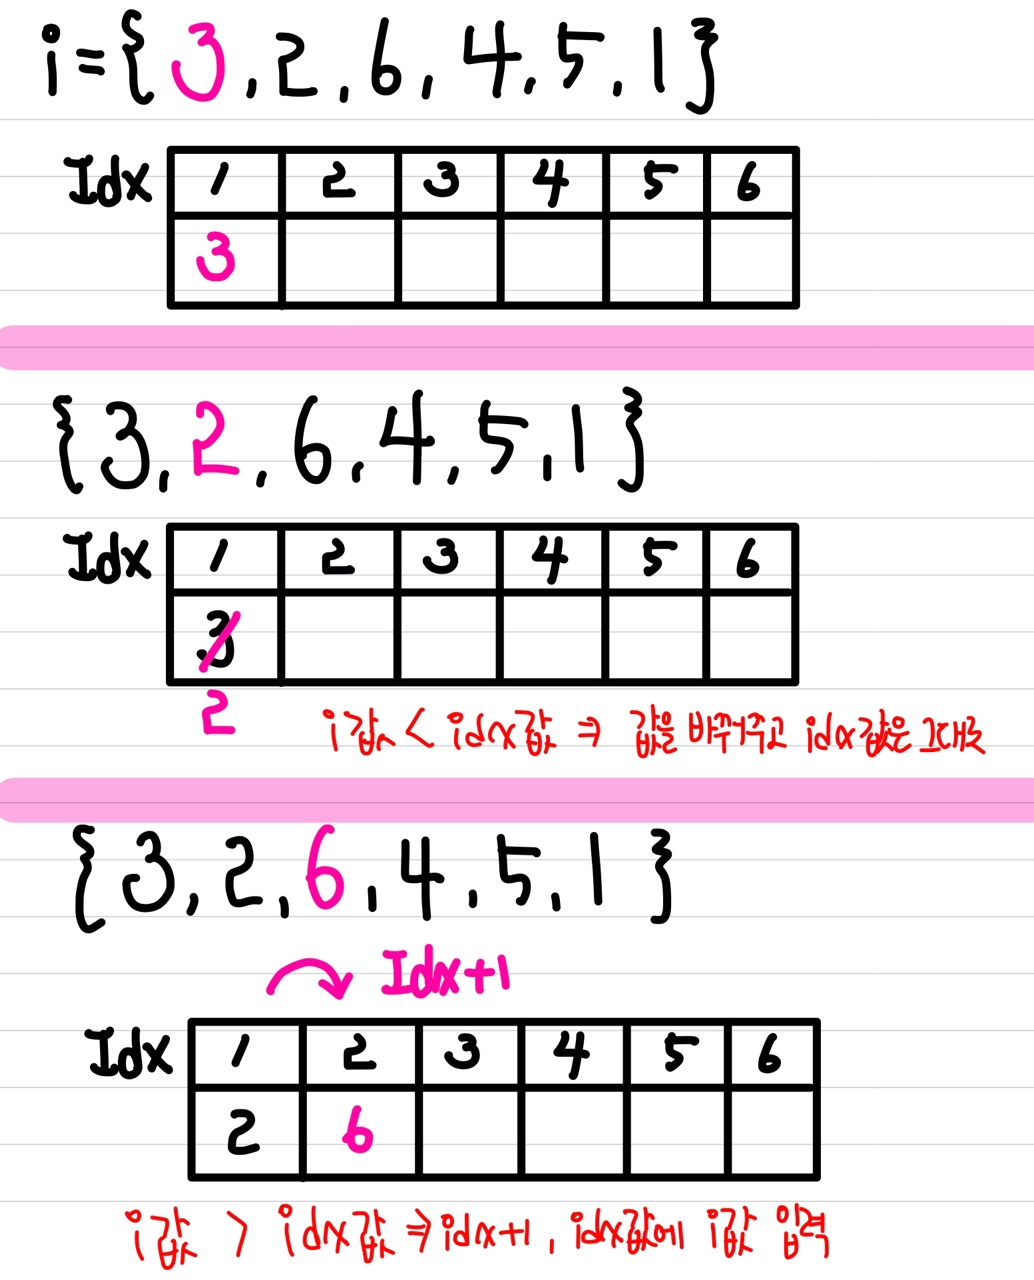 i={3,2,6,4,5,1}
Idx 1 2 3 4 5 6
3
{3,2,6,4,5,1}
Idx 1 2 3 4 5 6
3
2
i값 < idx값 ⇒ 값을 바꿔주고 idx값은 그대로
{3,2,6,4,5,1}
Idx+1
Idx 1 2 3 4 5 6
2 6
i값 > idx값 ⇒ idx+1, idx값에 i값 입력